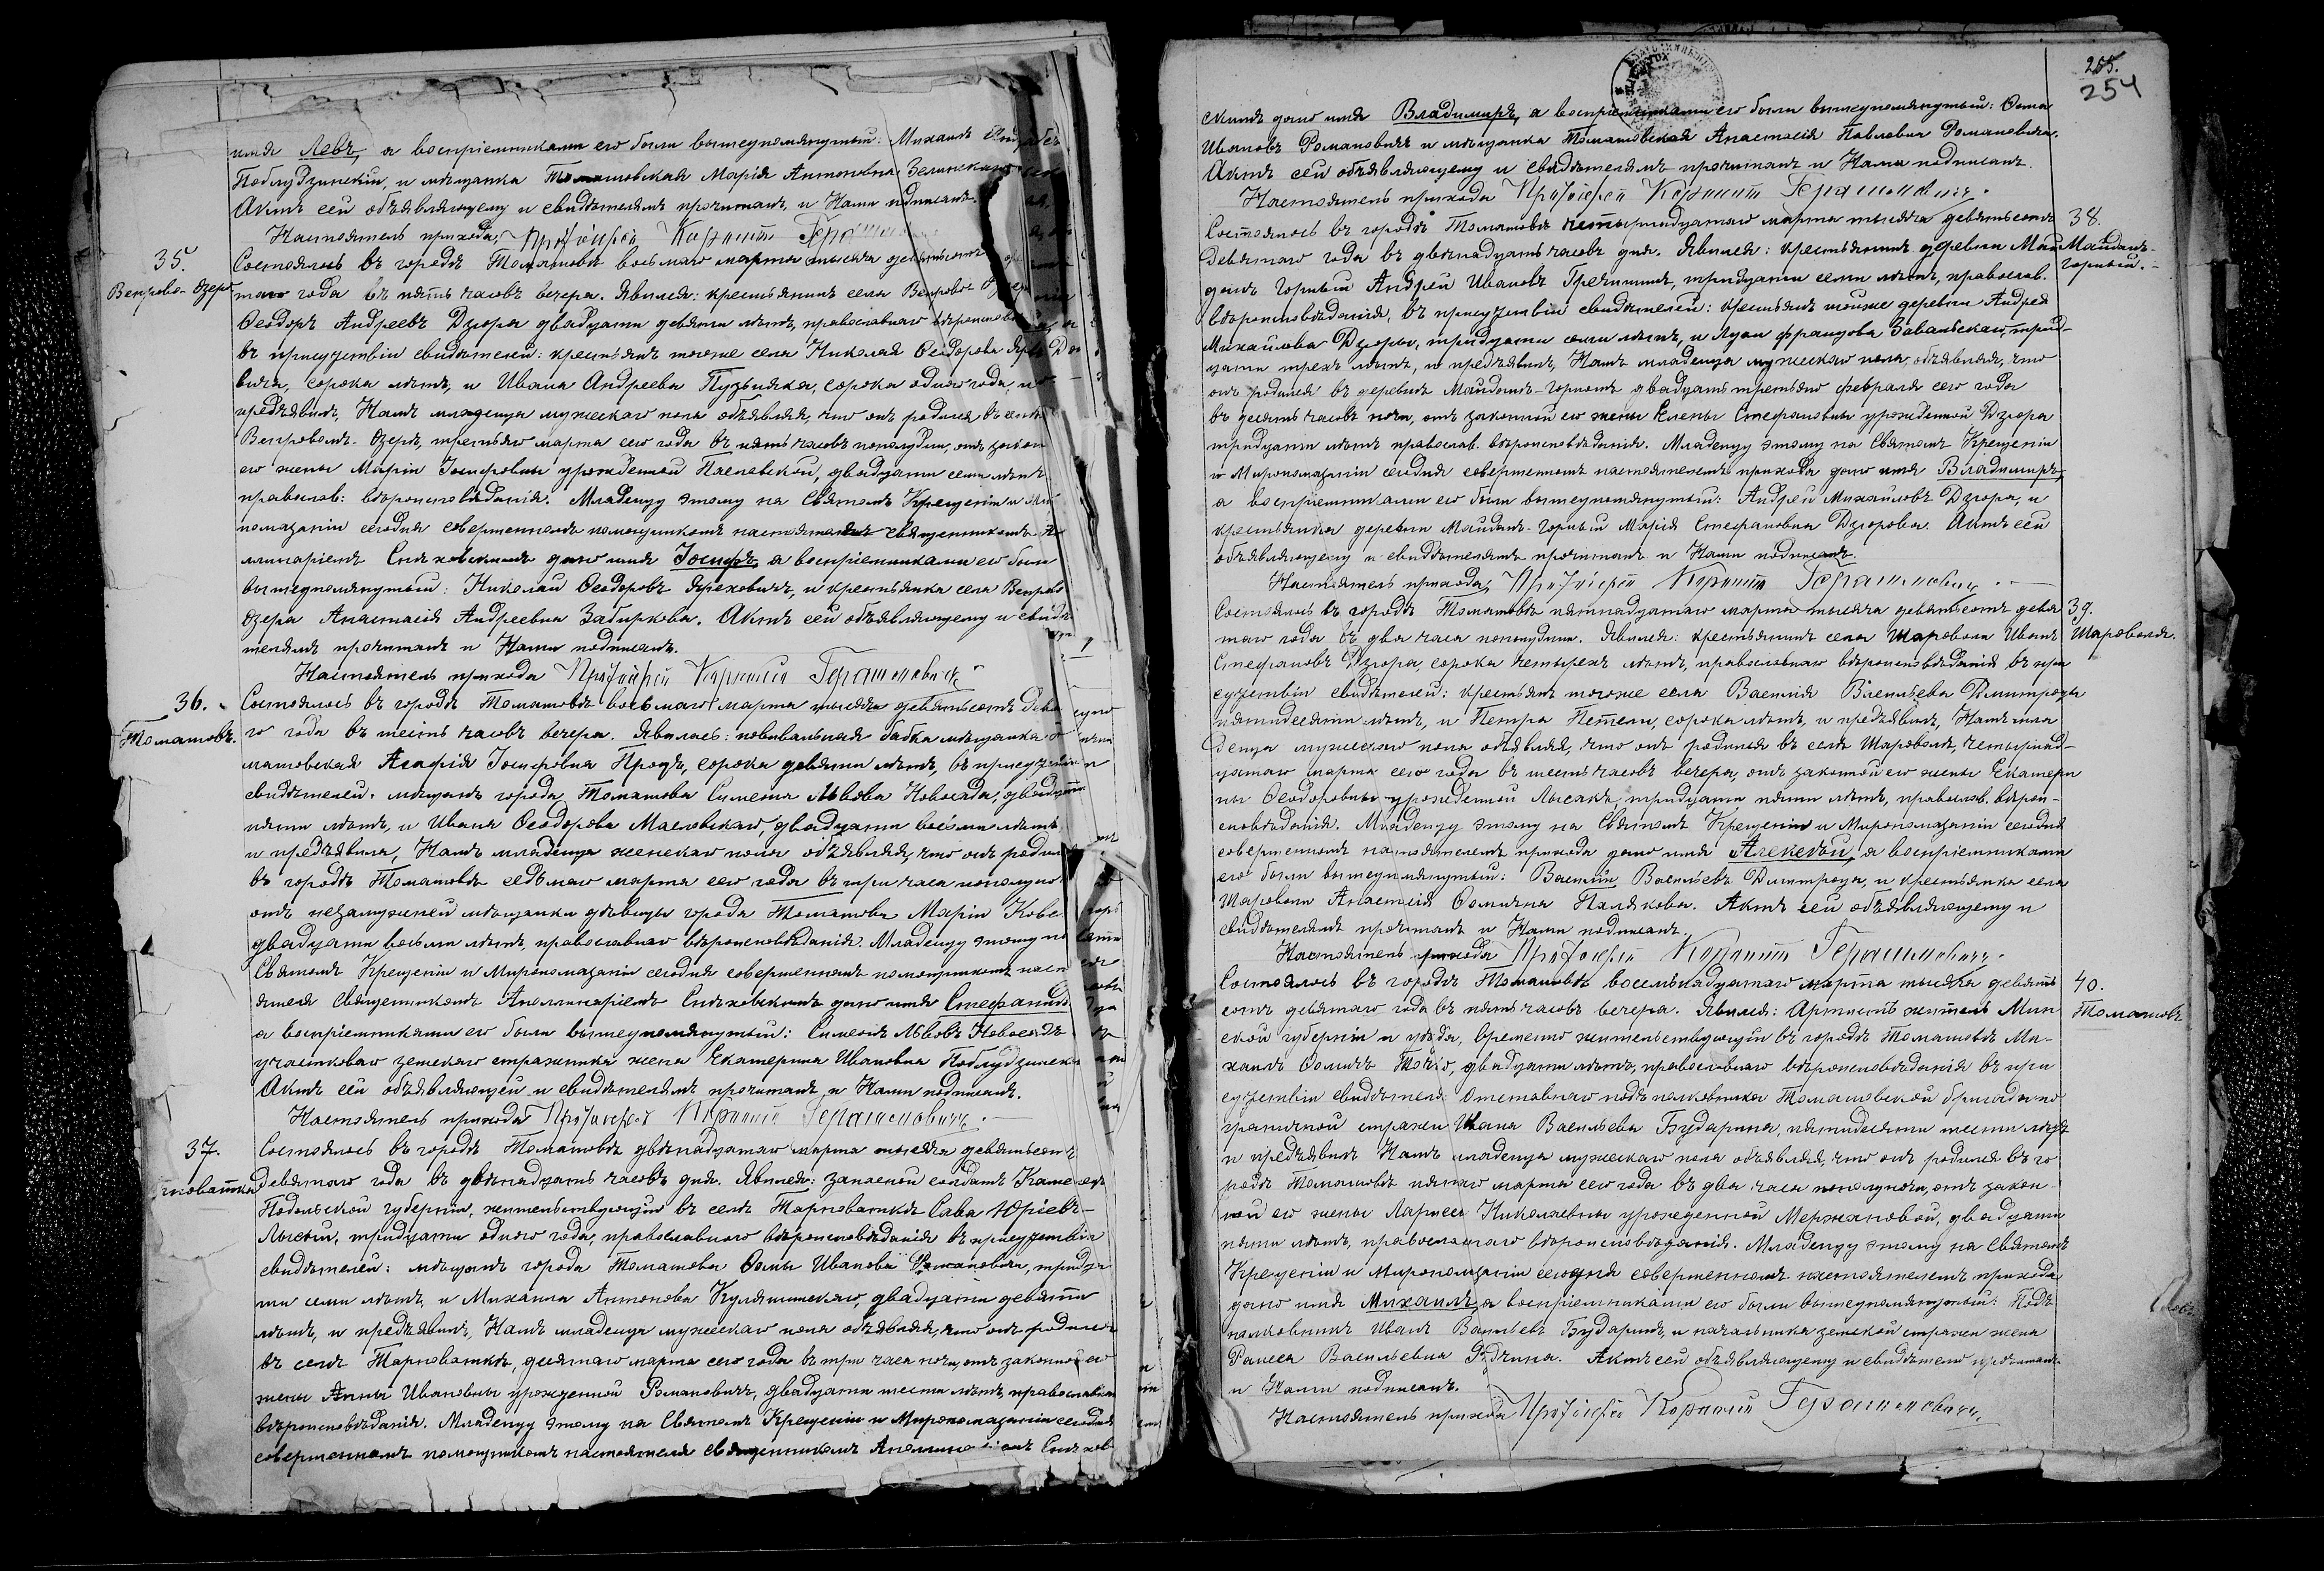 имя Левъ, а воспріемниками его были вышеупомянутый: Михаилъ
Поблудзинскій, и мѣщанка Томашовская Марія Антоновна Зелинская
Актъ сей объявляющему и свидѣтелямъ прочитанъ, и Нами подписанъ.
Настоятель прихода, Протоіерей Корнилій
35.
Венгрово-Озеро
Состоялось въ городѣ Томашовѣ восьмаго марта тысяча девятьсотъ
таго года въ пять часовъ вечера. Явился: крестьянинъ села Венгрово-
Ѳеодоръ Андреевъ Дзюра двадцати девяти лѣтъ, православнаго вѣроисповѣ
въ присутствіи свидѣтелей: крестьянъ тогоже села Николая Ѳеодорова
вича, сорока лѣтъ, и Ивана Андреева Пузьняка, сорока одного года, и
предъявилъ, Намъ младенца мужескаго пола объявляя, что онъ родился въ селѣ
Венгровомъ-Озерѣ, третьяго марта сего года въ пять часовъ пополудни, отъ закон
его жены Маріи Іосифовны урожденной Пасловской, двадцати семи лѣтъ
православ: вѣроисповѣданія. Младенцу этому на Святомъ Крещеніи и Ми
помазаніи сегодня совершенномъ помощникомъ настоятеля священникомъ А
ллинаріемъ Снѣховскимъ дано имя Іосифъ, а воспріемниками его были
вышеупомянутый: Николай Ѳеодоровъ Яреховичъ, и крестьянка села Венгрово
Озера Анастасія Андреевна Забиркова. Актъ сей объявляющему и свидѣ
телямъ прочитанъ и Нами подписанъ.
Настоятель прихода Протоіерей Корнилій Герасимовичъ
36.
Томашовъ.
Состоялось въ городѣ Томашовѣ восьмаго марта тысяча девятьсотъ девя
го года въ шесть часовъ вечера. Явилась: повивальная бабка мѣщанка
машовская Агафія Іосифовна Процъ, сорока девяти лѣтъ, въ присутствіи
свидѣтелей: мѣщанъ города Томашова Симеона Львова Новосада, двадцати
пяти лѣтъ, и Ивана Ѳеодорова Масловскаго, двадцати восьми лѣтъ
и предъявила, Намъ младенца женскаго пола объявляя, что онъ родил
въ городѣ Томашовѣ седьмаго марта сего года въ три часа пополуно
отъ незамужней мѣщанки дѣвицы города Томашова Маріи Кове
двадцати восьми лѣтъ, православнаго вѣроисповѣданія. Младенцу этому на
Святомъ Крещеніи и Миропомазаніи сегодня совершенномъ помощникомъ наст
ятеля Священникомъ Аполлинаріемъ Снѣховскимъ дано имя Стефанида
а воспріемниками его были вышеупомянутый: Симеонъ Львовъ Новосадъ
участковаго земскаго стражника жена Екатерина Ивановна Поблудзинска
Актъ сей объявляющей и свидѣтелямъ прочитанъ и Нами подписанъ.
Настоятель прихода Протоіерей Корнилій Герасимовичъ.
37.
новатка
Состоялось въ городѣ Томашовѣ двѣнадцатаго марта тысяча девятьсотъ
девятаго года въ двѣнадцать часовъ дня. Явился: запасной солдатъ Каменец
Подольской губерніи, жительствующій въ селѣ Тарноваткѣ Сава Юріевъ-
Лысый, тридцати одного года, православнаго вѣроисповѣданія въ присутствіи
свидѣтелей: мѣщанъ города Томашова Ѳомы Иванова Романовича, тридца
ти семи лѣтъ, и Михаила Антонова Кулашинскаго, двадцати девяти
лѣтъ, и предъявилъ, Намъ младенца мужескаго пола объявляя, что онъ родился
въ селѣ Тарноваткѣ, десятаго марта сего года въ три часа ночи, отъ законной его
жены Анны Ивановны урожденной Романовичъ, двадцати шести лѣтъ, православнаго
вѣроисповѣданія. Младенцу этому на Святомъ Крещеніи и Миропомазаніи сегодня
совершенномъ помощникомъ настоятеля священникомъ Аполлинаріемъ Снѣхов
255.
254
скимъ дано имя Владимиръ, а воспріемниками его были вышеупомянутый: Ѳома
Ивановъ Романовичъ и мѣщанка Томашовская Анастасія Павловна Романовичъ.
Актъ сей объявляющему и свидѣтелямъ прочитанъ и Нами подписанъ.
Настоятель прихода Протоіерей Корнилій Герасимовичъ.
38.
Майданъ-
Горный.-
Состоялось въ городѣ Томашовѣ четырнадцатаго марта тысяча девятьсотъ
девятаго года въ двѣнадцать часовъ дня. Явился: крестьянинъ деревни Май
данъ Горный Андрей Ивановъ Гречинъ, тридцати семи лѣтъ, православ.
вѣроисповѣданія, въ присутствіи свидѣтелей: крестьянъ тойже деревни Андрея
Михайлова Дзюры, тридцати семи лѣтъ, и Луки Францова Завальскаго, трид-
цати трехъ лѣтъ, и предъявилъ, Намъ младенца мужескаго пола, объявляя, что
онъ родился въ деревнѣ Майданѣ-Горномъ двадцать третьяго февраля сего года
въ десять часовъ ночи, отъ законной его жены Елены Стефановны урожденной Дзюра
тридцати лѣтъ православ. вѣроисповѣданія. Младенцу этому на Святомъ Крещеніи
и Миропомазаніи сегодня совершенномъ настоятелемъ прихода дано имя Владимиръ,
а воспріемниками его были вышеупомянутый: Андрей Михайловъ Дзюра, и
крестьянка деревни Майданъ-Горный Марія Стефановна Дзюрова. Актъ сей
объявляющему и свидѣтелямъ прочитанъ и Нами подписанъ.
Настоятель прихода, Протоіерей Корнилій Герасимовичъ.
39.
Шароволя.
Состоялось въ городѣ Томашовѣ пятнадцатаго марта тысяча девятьсотъ девя
таго года въ два часа пополудни. Явился: крестьянинъ села Шароволи Иванъ
Стефановъ Дзюра, сорока четырехъ лѣтъ, православнаго вѣроисповѣданія въ при
сутствіи свидѣтелей: крестьянъ тогоже села Василія Васильева Дмитроцы
пятидесяти лѣтъ, и Петра Петели, сорока лѣтъ, и предъявилъ, Намъ мла
денца мужескаго пола объявляя, что онъ родился въ селѣ Шароволѣ, четырнад-
цатаго марта сего года въ шесть часовъ вечера, отъ законной его жены Екатери
ны Ѳеодоровны урожденной Лысакъ, тридцати пяти лѣтъ, православ. вѣрои-
сповѣданія. Младенцу этому на Святомъ Крещеніи и Миропомазаніи сегодня
совершенномъ настоятелемъ прихода дано имя Алексѣй, а воспріемниками
его были вышеупомянутый: Василій Васильевъ Дмитроца, и крестьянка села
Шароволи Анастасія Ѳомична Палякова. Актъ сей объявляющему и
свидѣтелямъ прочитанъ и Нами подписанъ.
Настоятель прихода Протоіерей Корнилій Герасимовичъ.
40.
Томашовъ
Состоялось въ городѣ Томашовѣ восемьнадцатаго марта тысяча девять
сотъ девятаго года въ пять часовъ вечера. Явился: Артистъ житель Мин
ской губерніи и уѣзда, временно жительствующій въ городѣ Томашовѣ Ми-
хаилъ Ѳомичъ, двадцати лѣтъ, православнаго вѣроисповѣданія въ при
сутствіи свидѣтеля: Отставнаго подъполковника Томашовской бригады по
граничной стражи Ивана Васильева Бударина, пятидесяти шести лѣтъ
и предъявилъ Намъ младенца мужескаго пола объявляя, что онъ родился въ го
родѣ Томашовѣ пятаго марта сего года въ два часа пополуночи, отъ закон-
ной его жены Ларисы Николаевны урожденной Мержановой, двадцати
пяти лѣтъ, православнаго вѣроисповѣданія. Младенцу этому на Святомъ
Крещеніи и Миропомазаніи сегодня совершенномъ настоятелемъ прихода
дано имя Михаилъ, а воспріемниками его были вышеупомянутый: Подъ
полковникъ Иванъ Васильевъ Бударинъ, и начальника земской стражи жена
Раиса Васильевна. Актъ сей объявляющему и свидѣтелю прочитанъ
и Нами подписанъ.
Настоятель прихода Протоіерей Корнилій Герасимовичъ